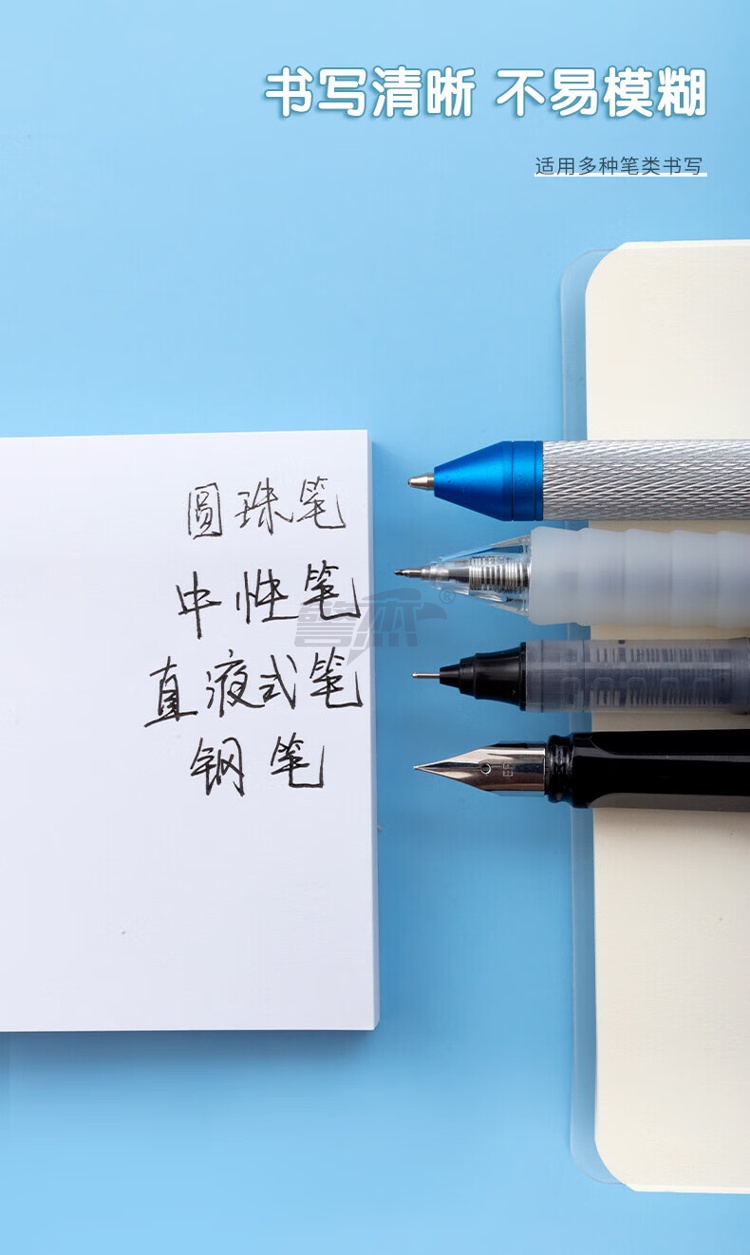 书写清晰 不易模糊
适用多种笔类书写
圆珠笔
中性笔
直液式笔
钢笔